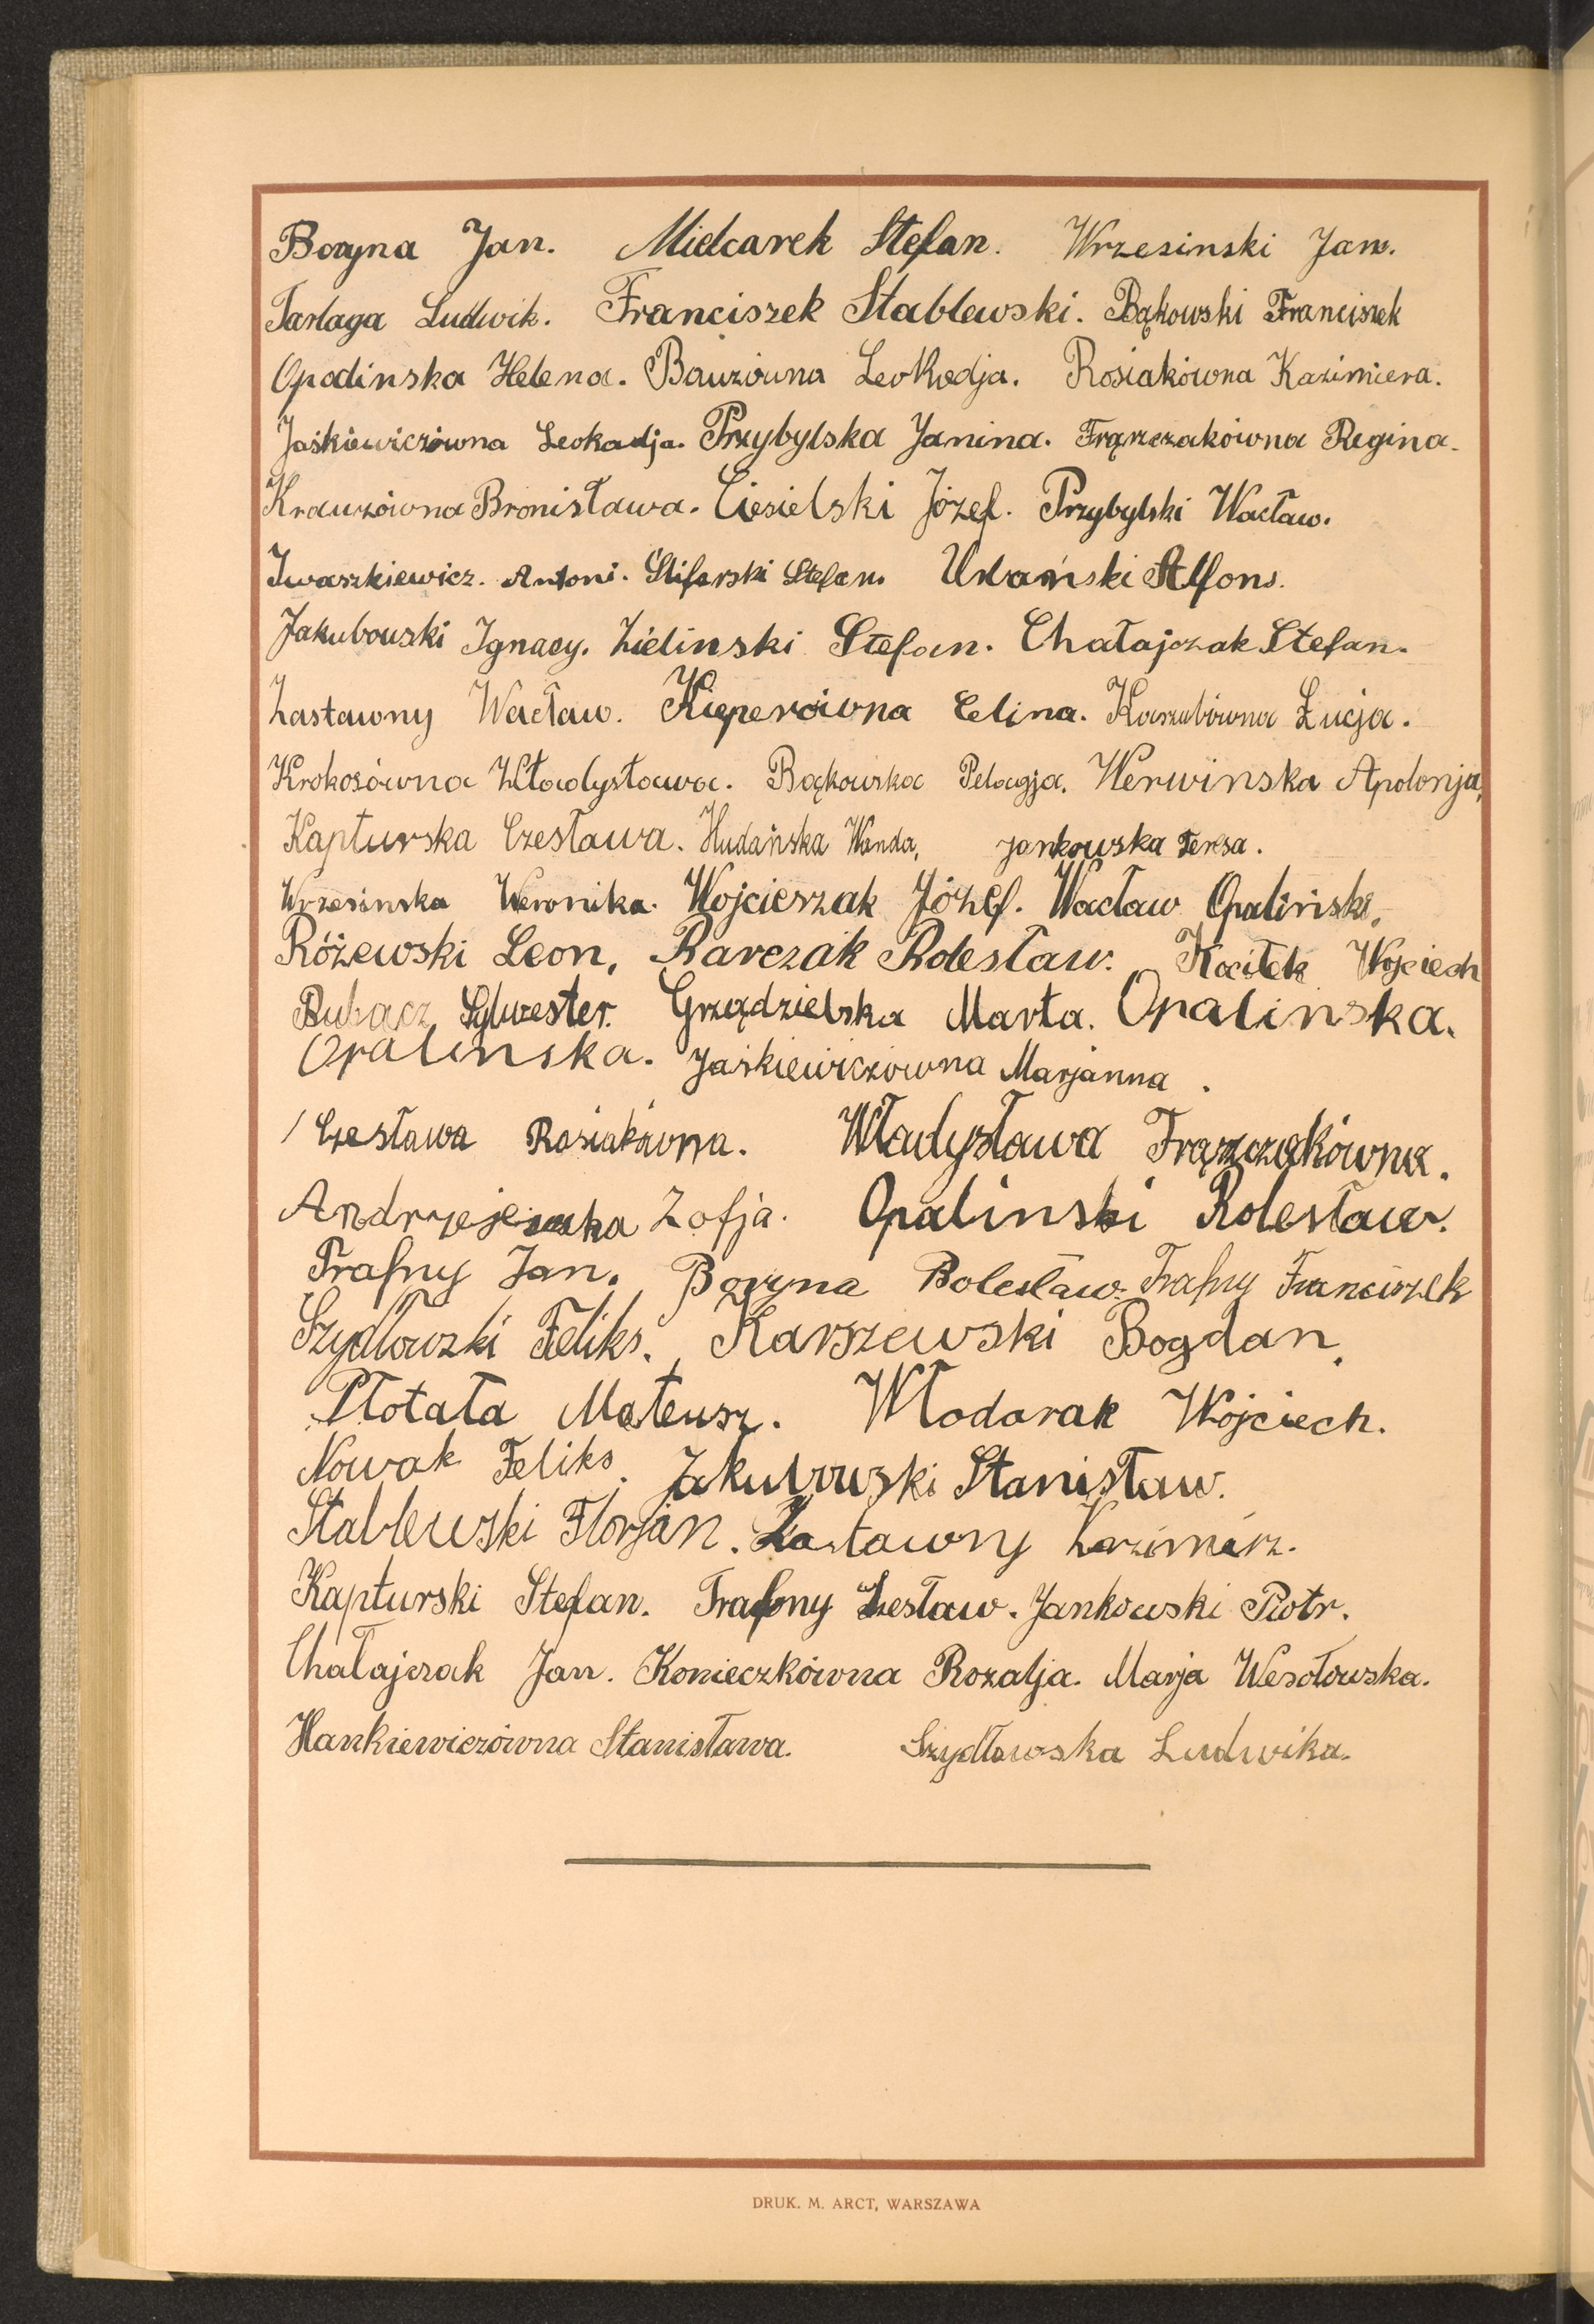 Boryna Jan. Mielcarek Stefan. Wrzesinski Jan.
Tarlaga Ludwik. Franciszek Stablewski. Bąkowski Franciszek
Opadinska Helena. Bauzówna Leokadja. Rosiakówna Kazimiera.
Jaśkiewiczówna Leokadja. Przybylska Janina. Frąszczakówna Regina.
Krauzówna Bronisława. Ciesielski Józef. Przybylski Wacław.
Iwaszkiewicz. Antoni. Slifarski Stefan. Udański Alfons.
Jakubowski Ignacy. Zielinski Stefan. Chałajczak Stefan.
Zastawny Wacław. Kieperówna Celina. Kaszubówna Łucja.
Krokosówna Władysława. Bąkowska Pelagja. Werwinska Apolonja,
Kapturska Czesława. Hudańska Wanda, Jankowska Teresa.
Wrzesinska Weronika. Wojcieszak Józef. Wacław Opaliński,
Różewski Leon, Barczak Bolesław. Kaciłek Wojciech
Bubacz Sylwester. Grządzielska Marta. Opalinska.
Opalinska. Jaśkiewiczówna Marjanna.
Czesława Rosiakówna. Władysława Frąszczakówna.
Andrzejewska Zofja. Opalinski Bolesław.
Trafny Jan. Boryna Bolesław. Trafny Franciszek
Szydłowski Feliks. Karszewski Bogdan,
Płotała Mateusz. Włodarak Wojciech.
Nowak Feliks. Jakubowski Stanisław.
Stablewski Florjan. Zastawny Kazimierz.
Kapturski Stefan. Trafony Czesław. Jankowski Piotr.
Chałajczak Jan. Konieczkówna Rozalja. Marja Wesołowska.
Hankiewiczówna Stanisława. Szydłowska Ludwika.
DRUK. M. ARCT, WARSZAWA